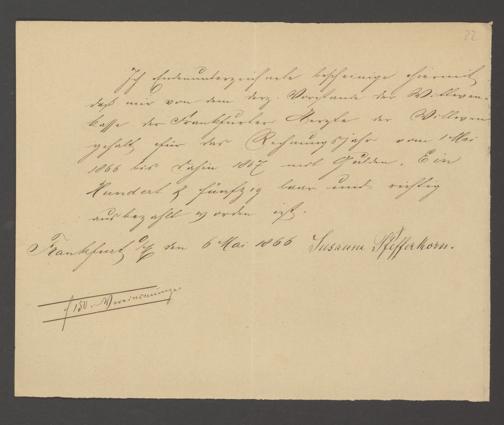 22
Ich Endesunterzeichnete bescheinige hiermit
daß mir von dem derz. Vorstande der Wittwen-
kasse der Frankfurter Aerzte der Wittwen
gehalt für das Rechnungsjahr vom 1 Mai
1866 bis dahin 1867 mit Gulden. Ein
Hundert & fünfzig baar und richtig
ausbezahlt worden ist.
Frankfurt a/M den 6 Mai 1866 Susanna Pfefferkorn.
f 150. Vereinsmünze